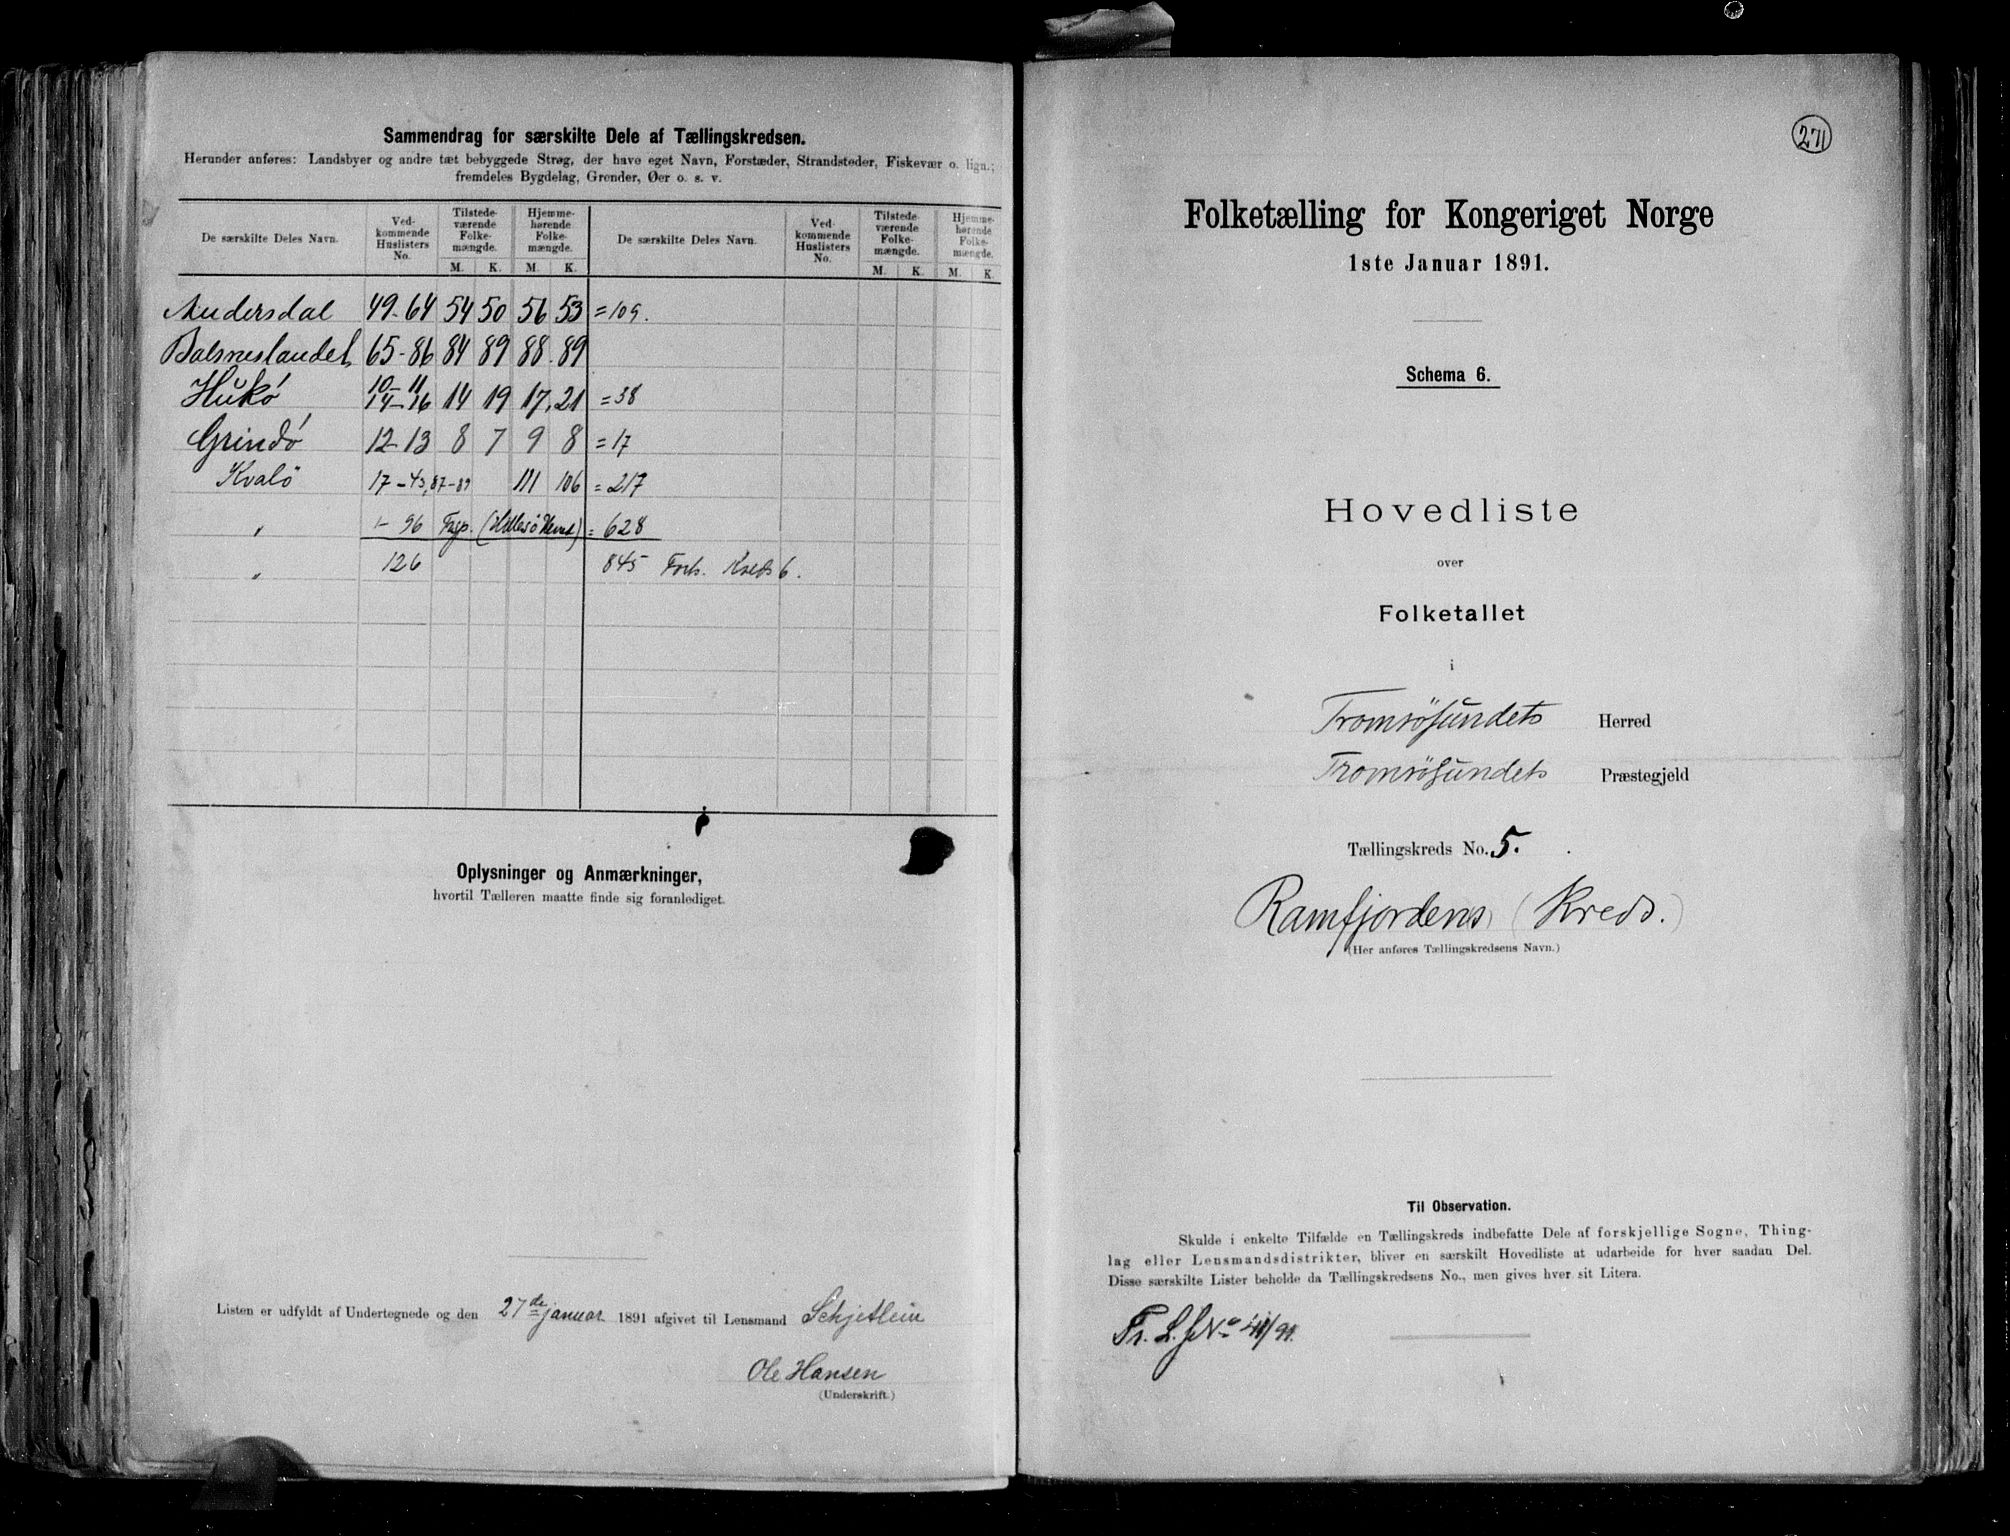 Sammendrag for særskilte Dele af Tællingskredsen.
Herunder anføres: Landsbyer og andre tæt bebyggede Strøg, der have eget Navn, Forstæder, Strandsteder, Fiskevær o. lign.;
fremdeles Bygdelag, Grender, Øer o. s. v.
De særskilte Deles Navn. Ved-kommende Huslisters No. Tilstede-værende Folke-mængde. Hjemme-hørende Folke-mængde. De særskilte Deles Navn. Ved-kommende Huslisters No. Tilstede-værende Folke-mængde. Hjemme-hørende Folke-mængde.
M. K. M. K. M. K. M. K.
Andersdal 49-64 54 50 56 53 = 109.
Balsneslandet 65-86 84 89 88 89
Hukö 10-11 14-16 14 19 17 21 = 38
Grindö 12-13 8 7 9 8 = 17
Kvalö 17-43, 87-89 111 106 = 217
" 1-96 (Hillesö Herred) = 628
" 126 845 Kreds 6.
Oplysninger og Anmærkninger,
hvortil Tælleren maatte finde sig foranlediget.
Listen er udfyldt af Undertegnede og den 27de januar 1891 afgivet til Lensmand Schjetlein
Ole Hansen
(Underskrift.)
271
Folketælling for Kongeriget Norge
1ste Januar 1891.
Schema 6.
Hovedliste
over
Folketallet
i
Tromsösundets Herred
Tromsösundets Præstegjeld
Tællingskreds No. 5.
Ramfjordens (Kreds.)
(Her anføres Tællingskredsens Navn.)
Til Observation.
Skulde i enkelte Tilfælde en Tællingskreds indbefatte Dele af forskjellige Sogne, Thing-
lag eller Lensmandsdistrikter, bliver en særskilt Hovedliste at udarbeide for hver saadan Del.
Disse særskilte Lister beholde da Tællingskredsens No., men gives hver sit Litera.